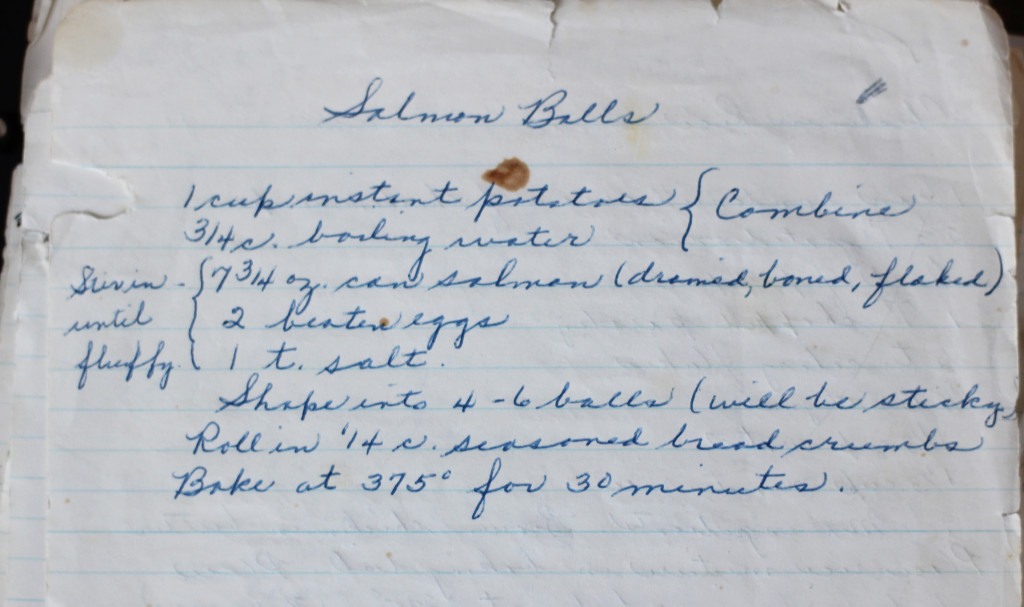 Salmon Balls
1 cup instant potatoes { Combine
3/4 c. boiling water
Stir in - { 7 3/4 oz. can salmon (drained, boned, flaked)
until { 2 beaten eggs
fluffy. { 1 t. salt.
Shape into 4 - 6 balls (will be sticky
Roll in 1/4 c. seasoned bread crumbs
Bake at 375° for 30 minutes.